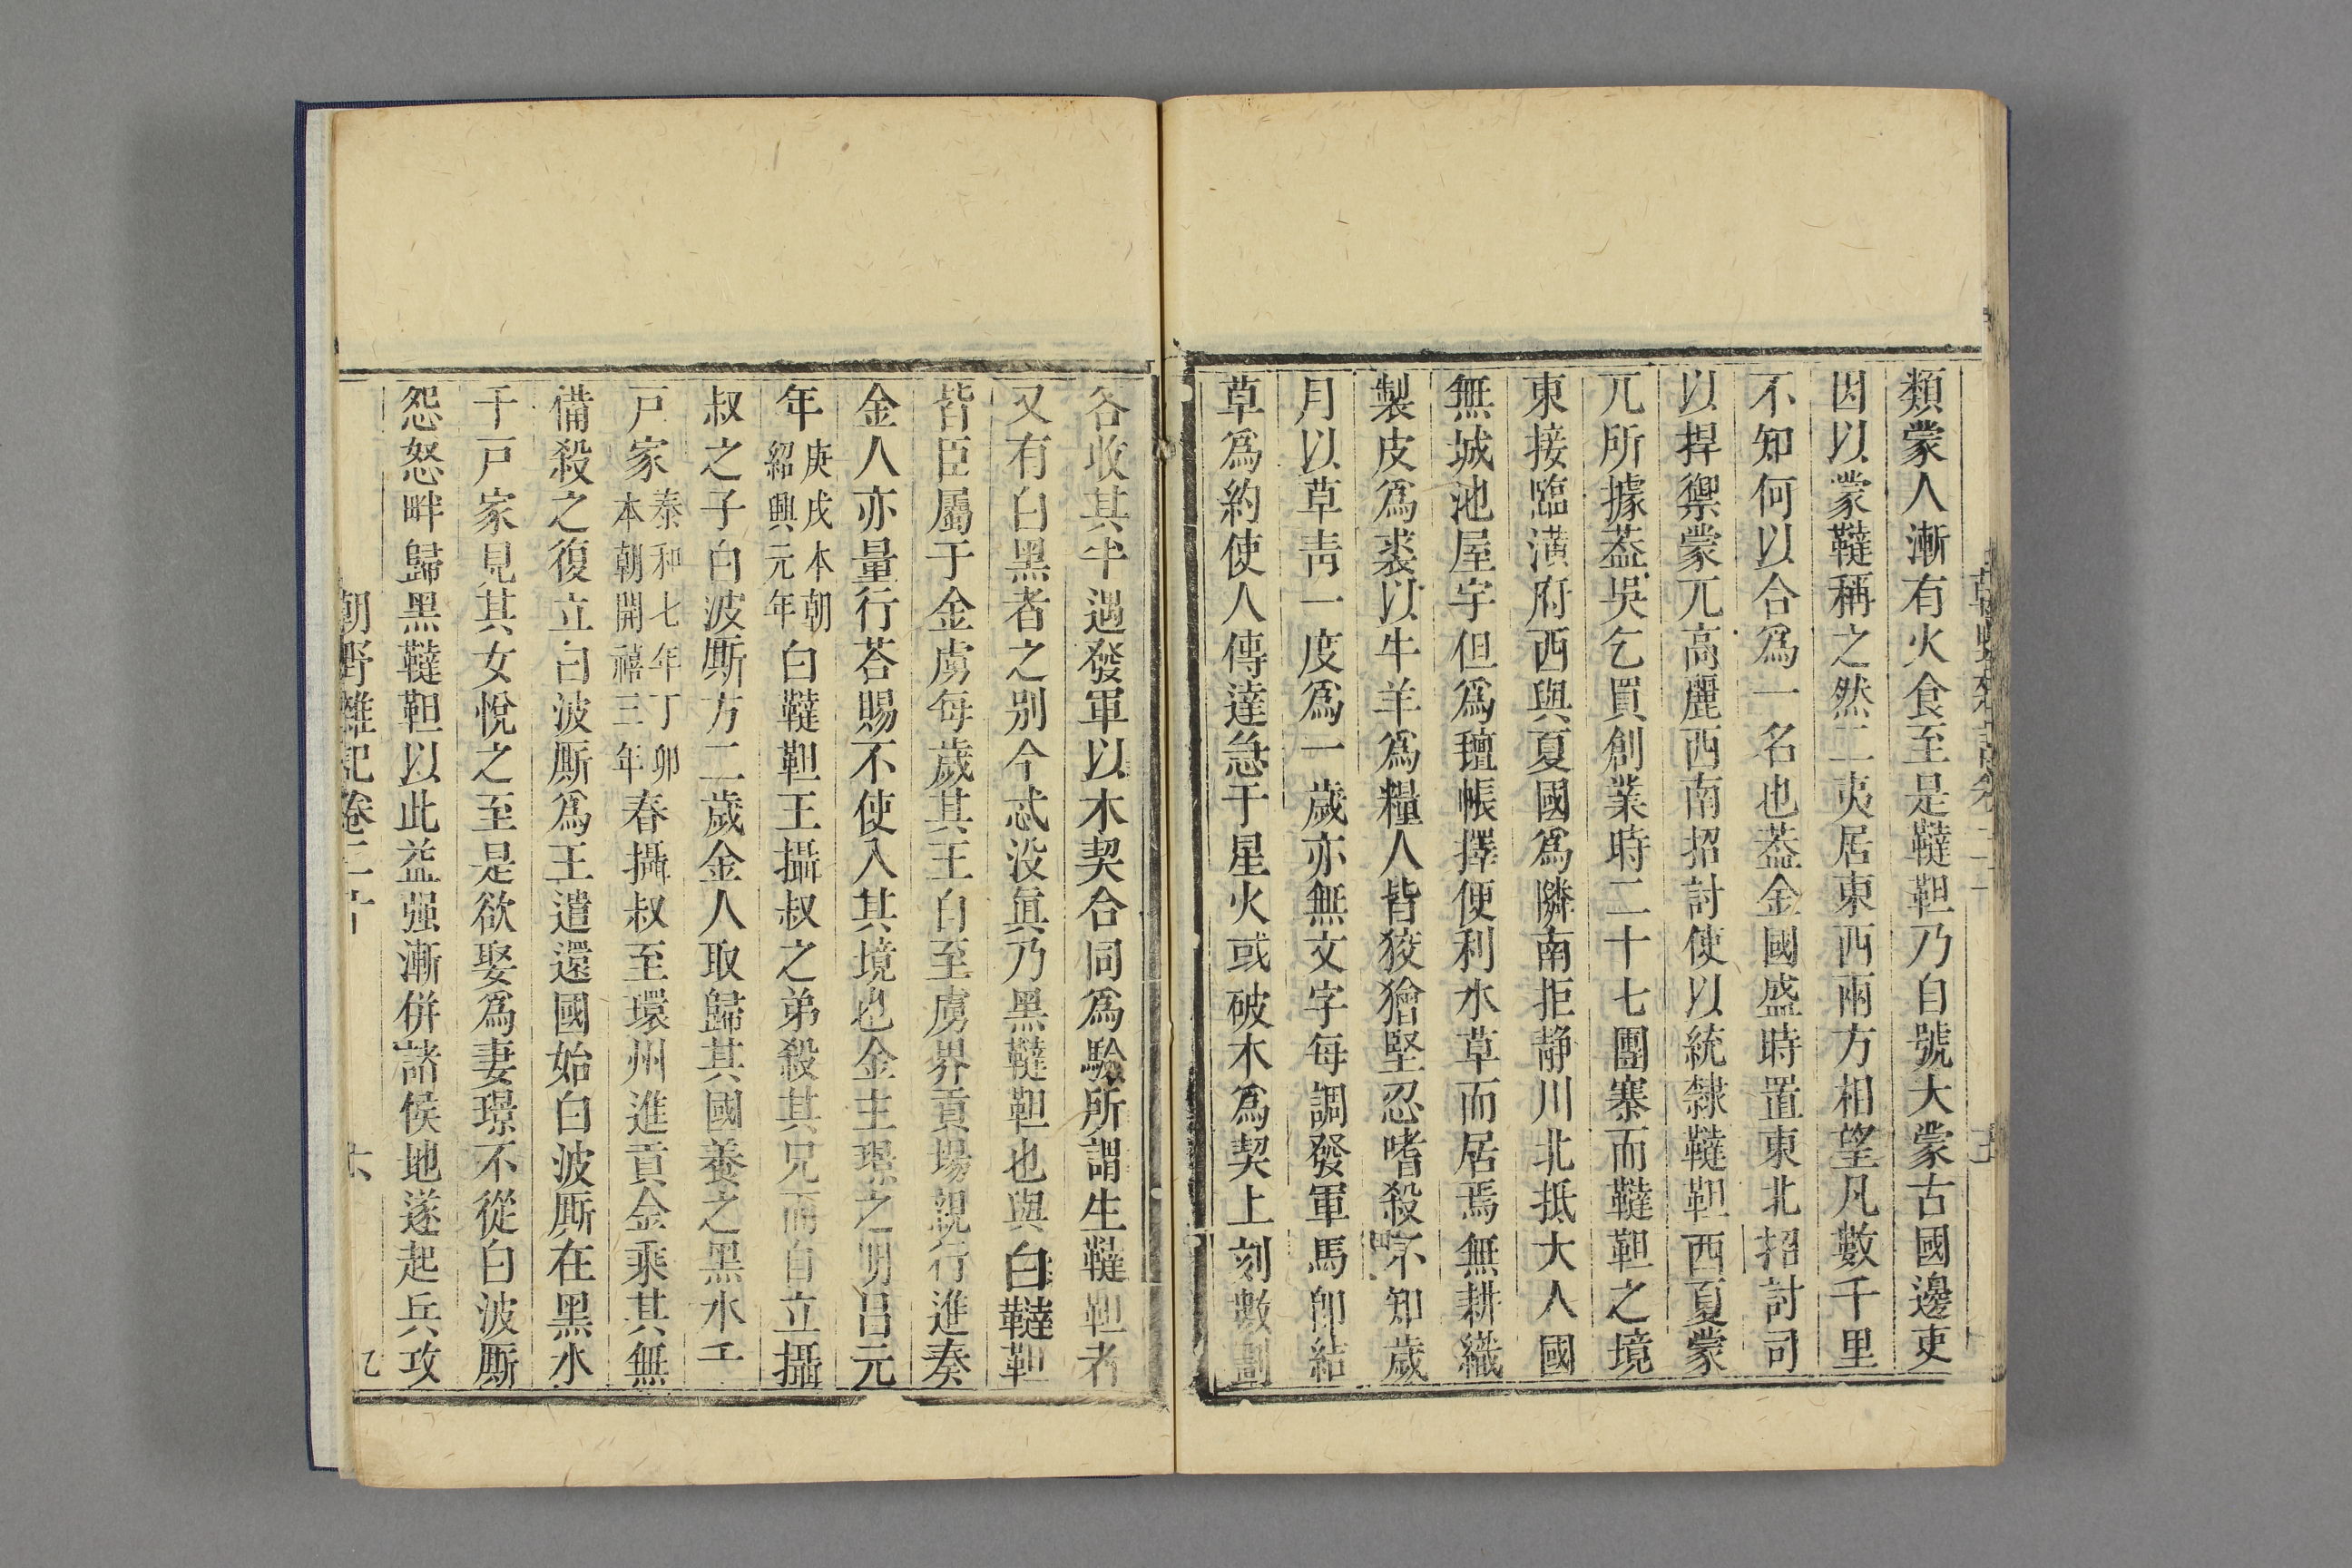 類蒙人漸有火食至是韃靼乃自號大蒙古國邊吏
因以蒙韃稱之然二夷居東西兩方相望凡數千里
不知何以合爲一名也葢金國盛時置東北招討司
以捍禦蒙兀高麗西南招討使以統隸韃靼西夏蒙
兀所據葢吳乞買創業時二十七團寨而韃靼之境
東接臨潢府西與夏國爲隣南拒静川北抵大人國
無城池屋宇但爲氊帳擇便利水草而居焉無耕織
製皮爲裘以牛羊爲糧人皆狡獪堅忍嗜殺不知歲
月以草靑一度爲一歲亦無文字每調發軍馬卽結
草爲約使人傳達急于星火或破木爲契上刻數劃
各收其半遇發軍以木契合同爲驗所謂生韃靼者
又有白黑者之别今忒没眞乃黑韃靼也與白韃靼
皆臣屬于金虜每歲其王自至虜界貢場親行進奏
金人亦量行荅賜不使入其境也金主璟之明昌元
年庚戌本朝紹興元年白韃靼王攝叔之弟殺其兄而自立攝
叔之子白波厮方二歲金人取歸其國養之黑水千
戸家泰和七年丁卯本朝開禧三年春攝叔至環州進貢金乘其無
備殺之復立白波厮爲王遣還國始白波厮在黑水
千戸家見其女悅之至是欲娶爲妻璟不從白波厮
怨怒畔歸黑韃靼以此益强漸併諸侯地遂起兵攻
朝野雜記卷二十 六